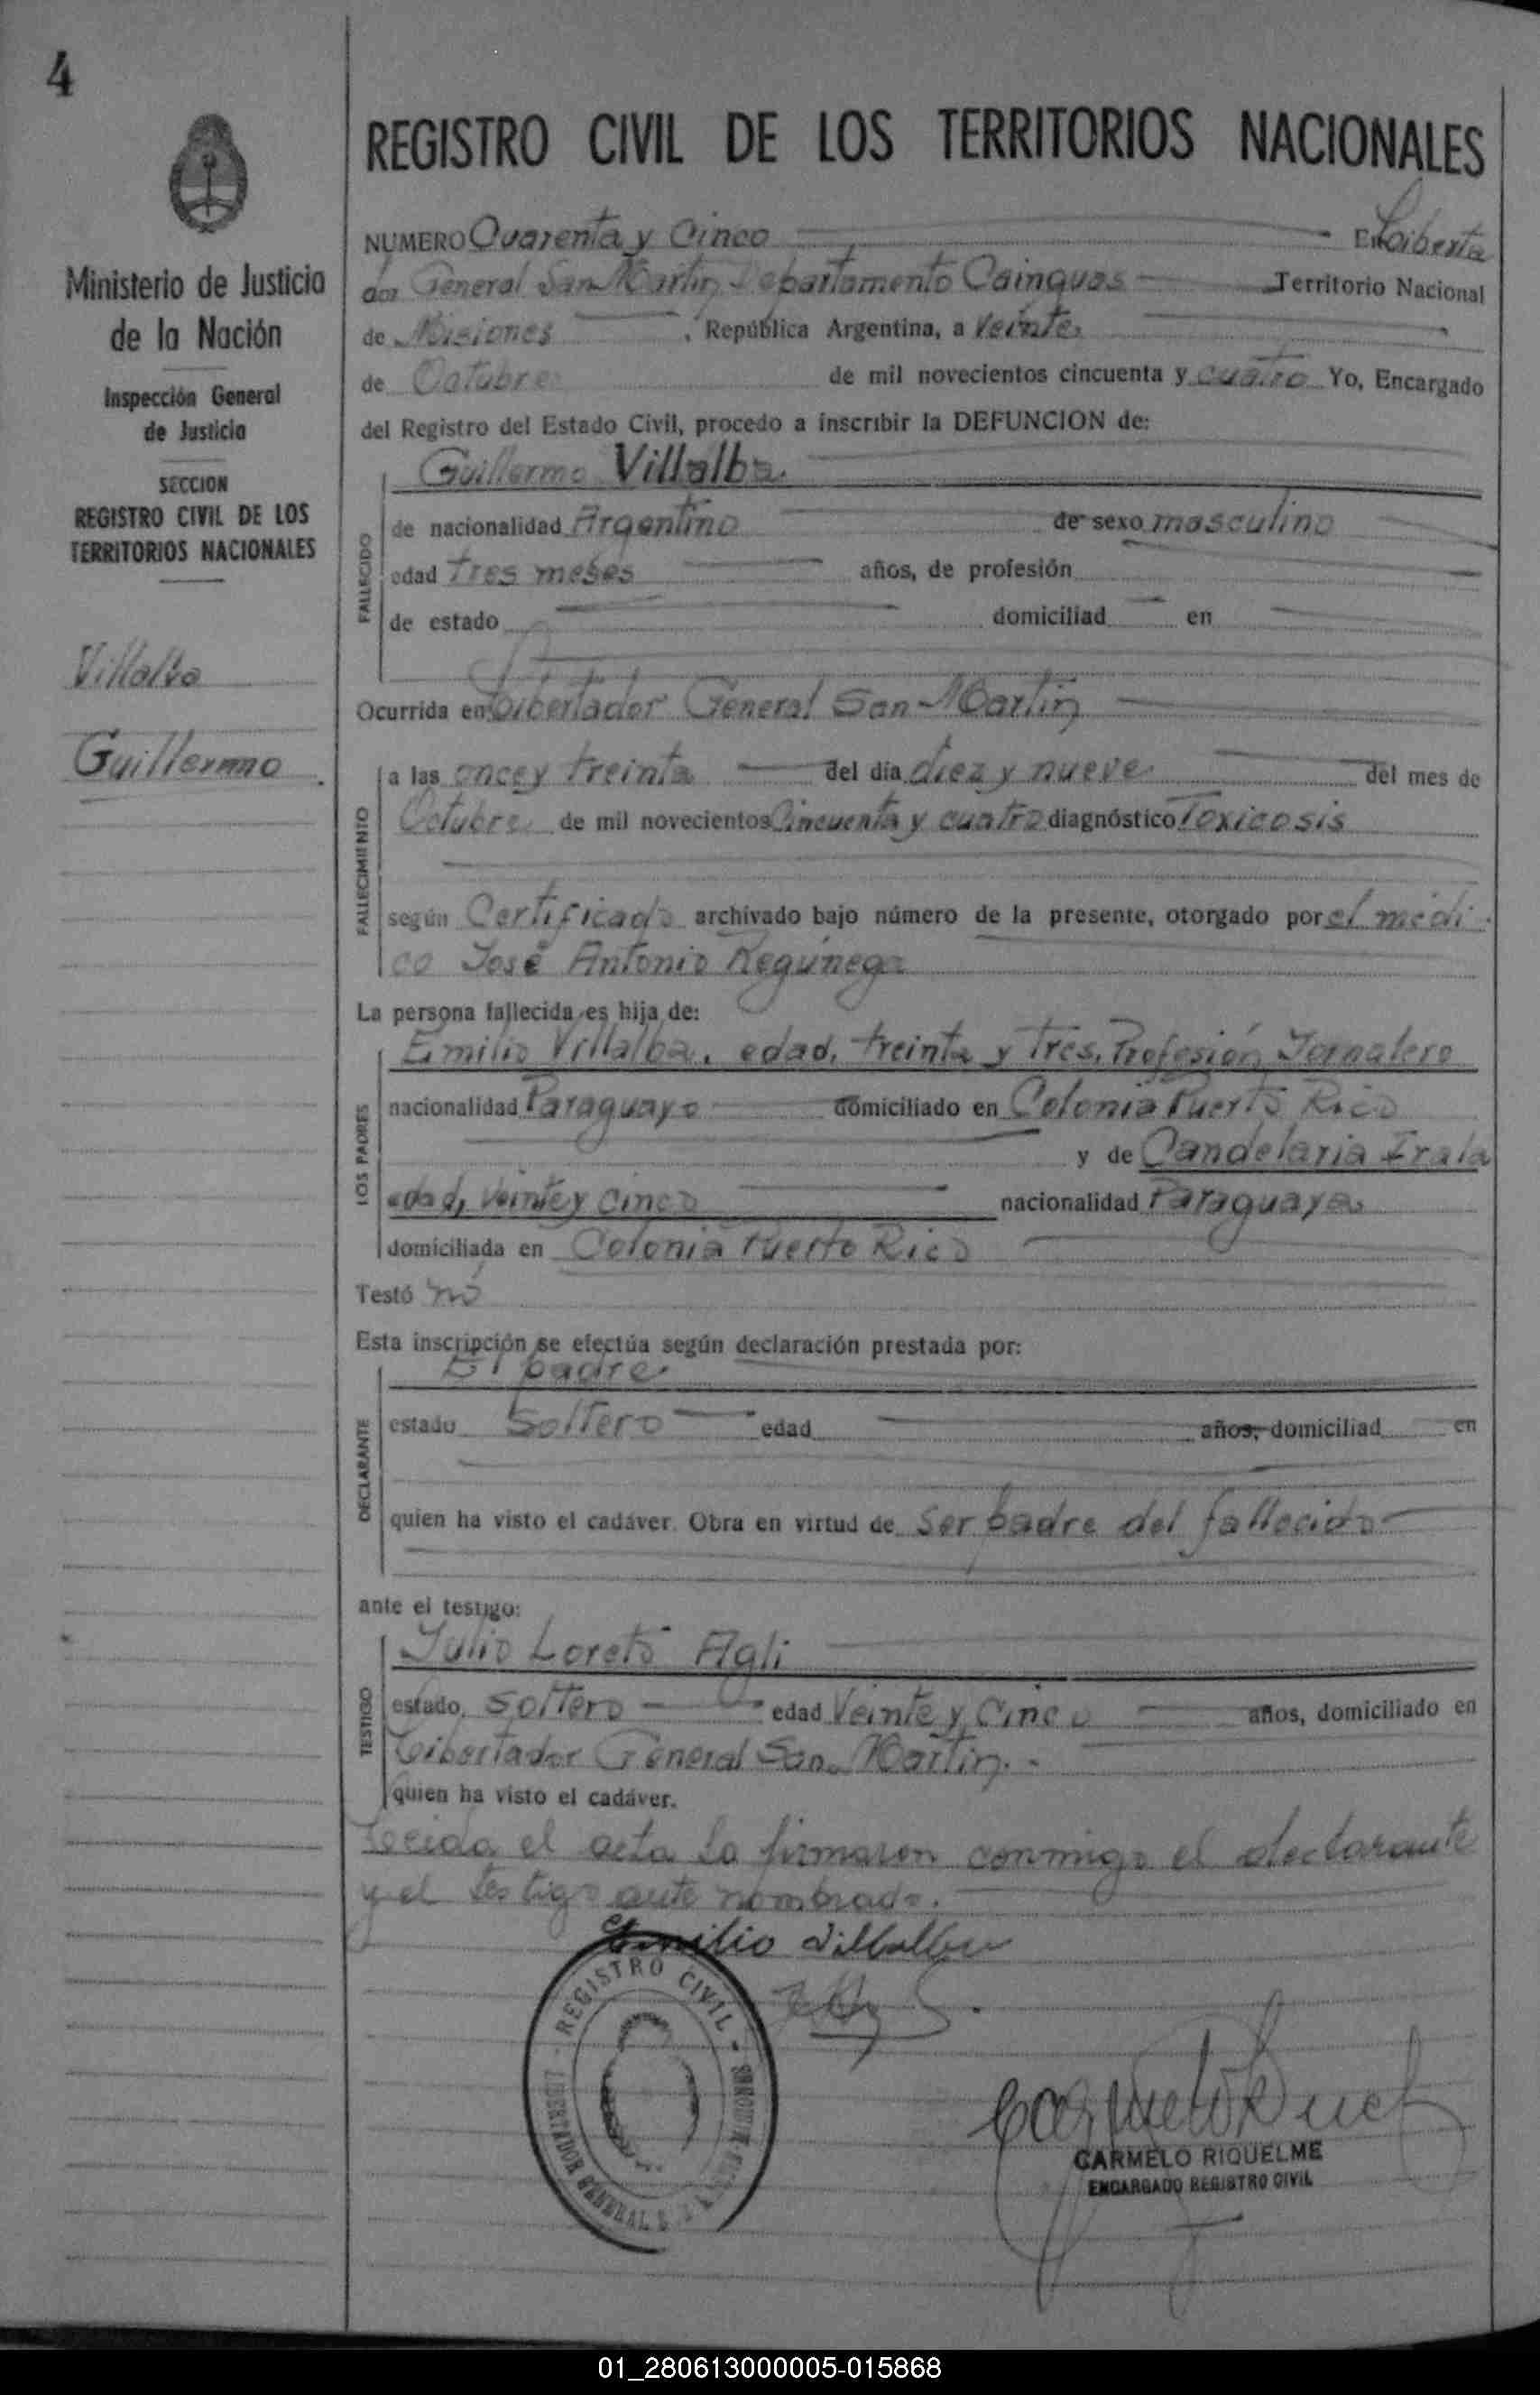 4
REGISTRO CIVIL DE LOS TERRITORIOS NACIONALES
Ministerio de Justicia
de la Nación
Inspección General
de Justicia
SECCION
REGISTRO CIVIL DE LOS
TERRITORIOS NACIONALES
Villalba
Guillermo
NUMERO Quarenta y Cinco En Liberta
dor General San Martin Departamento Cainguas Territorio Nacional
de Misiones, República Argentina, a Veinte
de Octubre de mil novecientos cincuenta y cuatro Yo, Encargado
del Registro del Estado Civil, procedo a inscribir la DEFUNCION de:
Guillermo Villalba.
FALLECIDO
de nacionalidad Argentino de sexo masculino
edad tres meses años, de profesión
de estado domiciliad en
Ocurrida en Libertador General San Martin
FALLECIMIENTO
a las once y treinta del día diez y nueve del mes de
Octubre de mil novecientos Cincuenta y cuatro diagnóstico Toxicosis
según Certificado archivado bajo número de la presente, otorgado por el médi
co José Antonio Regúnega
La persona fallecida es hija de:
LOS PADRES
Emilio Villalba, edad, treinta y tres, Profesión Jornalero
nacionalidad Paraguayo domiciliado en Colonia Puerto Rico
y de Candelaria Irala
edad, Veinte y cinco nacionalidad Paraguaya
domiciliada en Colonia Puerto Rico
Testó nó
Esta inscripción se efectúa según declaración prestada por:
DECLARANTE
El padre
estado Soltero edad años, domiciliad en
quien ha visto el cadáver. Obra en virtud de ser padre del fallecido
ante el testigo:
TESTIGO
Julio Loreto Agli
estado, soltero edad Veinte y Cinco años, domiciliado en
Libertador General San Martin.-
quien ha visto el cadáver.
Leída el acta la firmaron conmigo el declarante
y el testigo ante nombrado.
Emilio Villalba
REGISTRO CIVIL - MISIONES
LIBERTADOR GENERAL S
CARMELO RIQUELME
ENCARGADO REGISTRO CIVIL
01_280613000005-015868